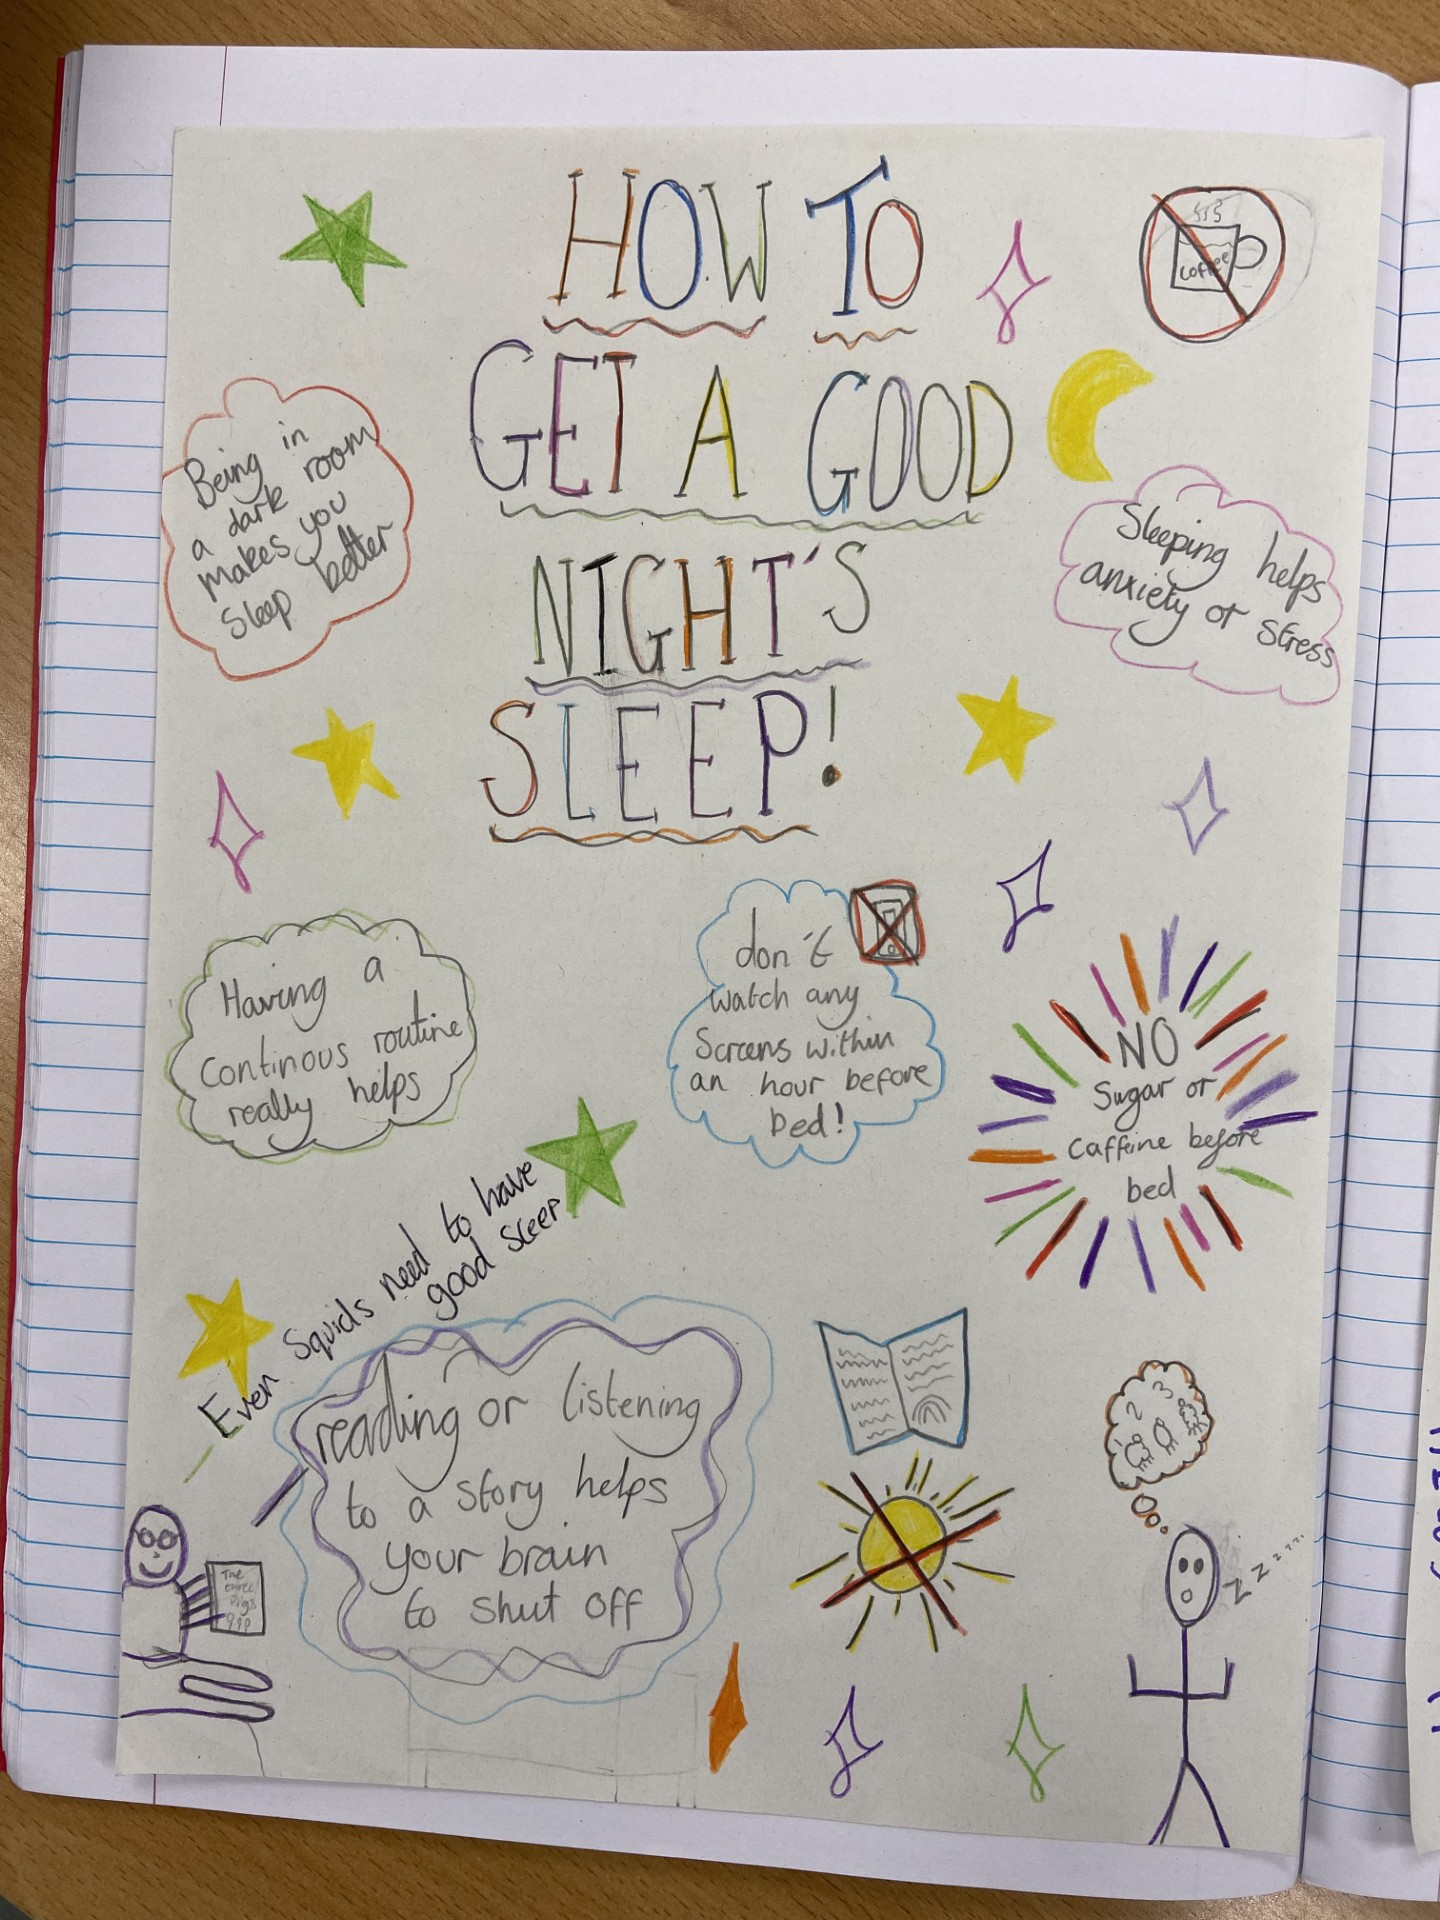 HOW TO
GET A GOOD
NIGHT'S
SLEEP!
coffee
Being in
a dark room
makes you
sleep better
Sleeping helps
anxiety or stress
Having a
continous routine
really helps
don't
watch any
screens within
an hour before
bed!
NO
Sugar or
caffeine before
bed
Even Squids need to have
good sleep
reading or listening
to a story helps
your brain
to shut off
The
three
pigs
1 2 3
Z z z z z z